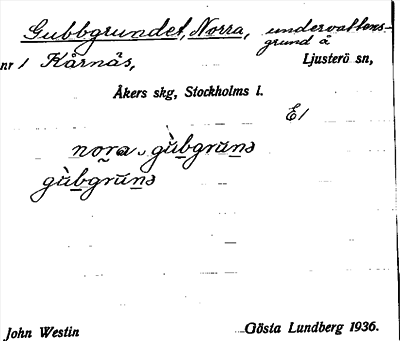 Gubbgrundet, Norra, undervattens-
grund å
nr 1 Kårnäs, Ljusterö sn,
Åkers skg, Stockholms l.
E1
nora gùbgrunə
gùbgrūnə
John Westin Gösta Lundberg 1936.